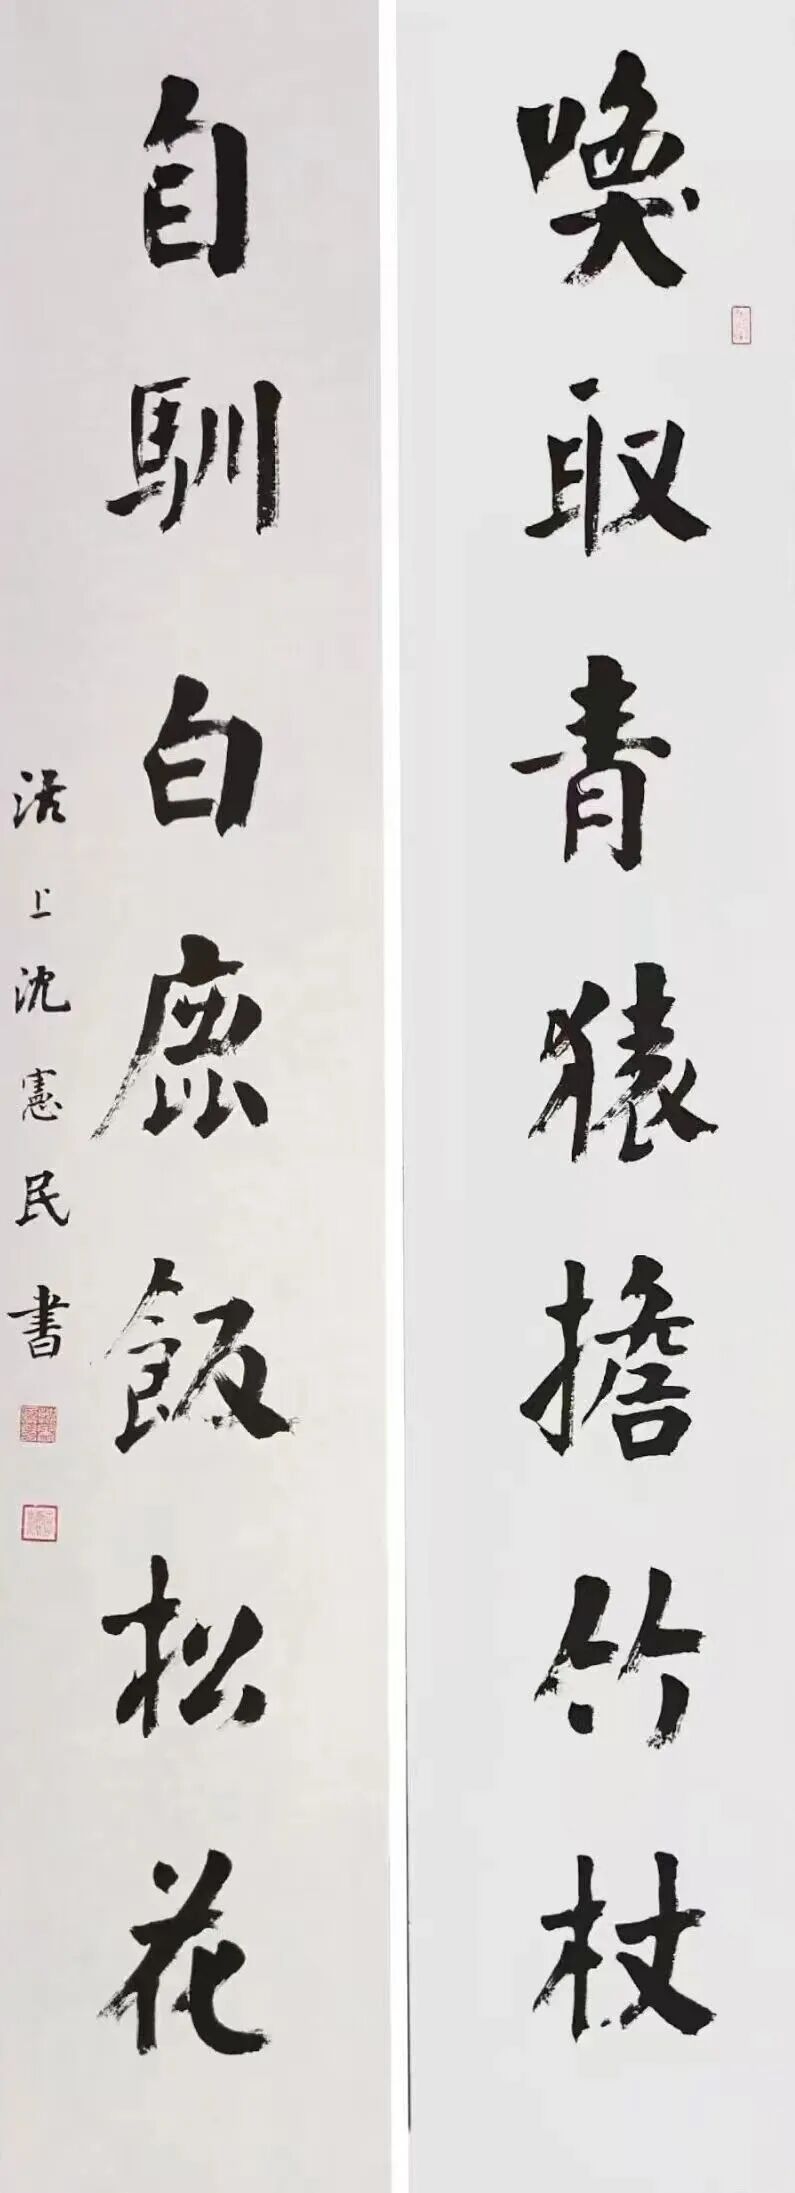 喚取青猿擔竹杖
自馴白鹿飯松花
上沈憲民書